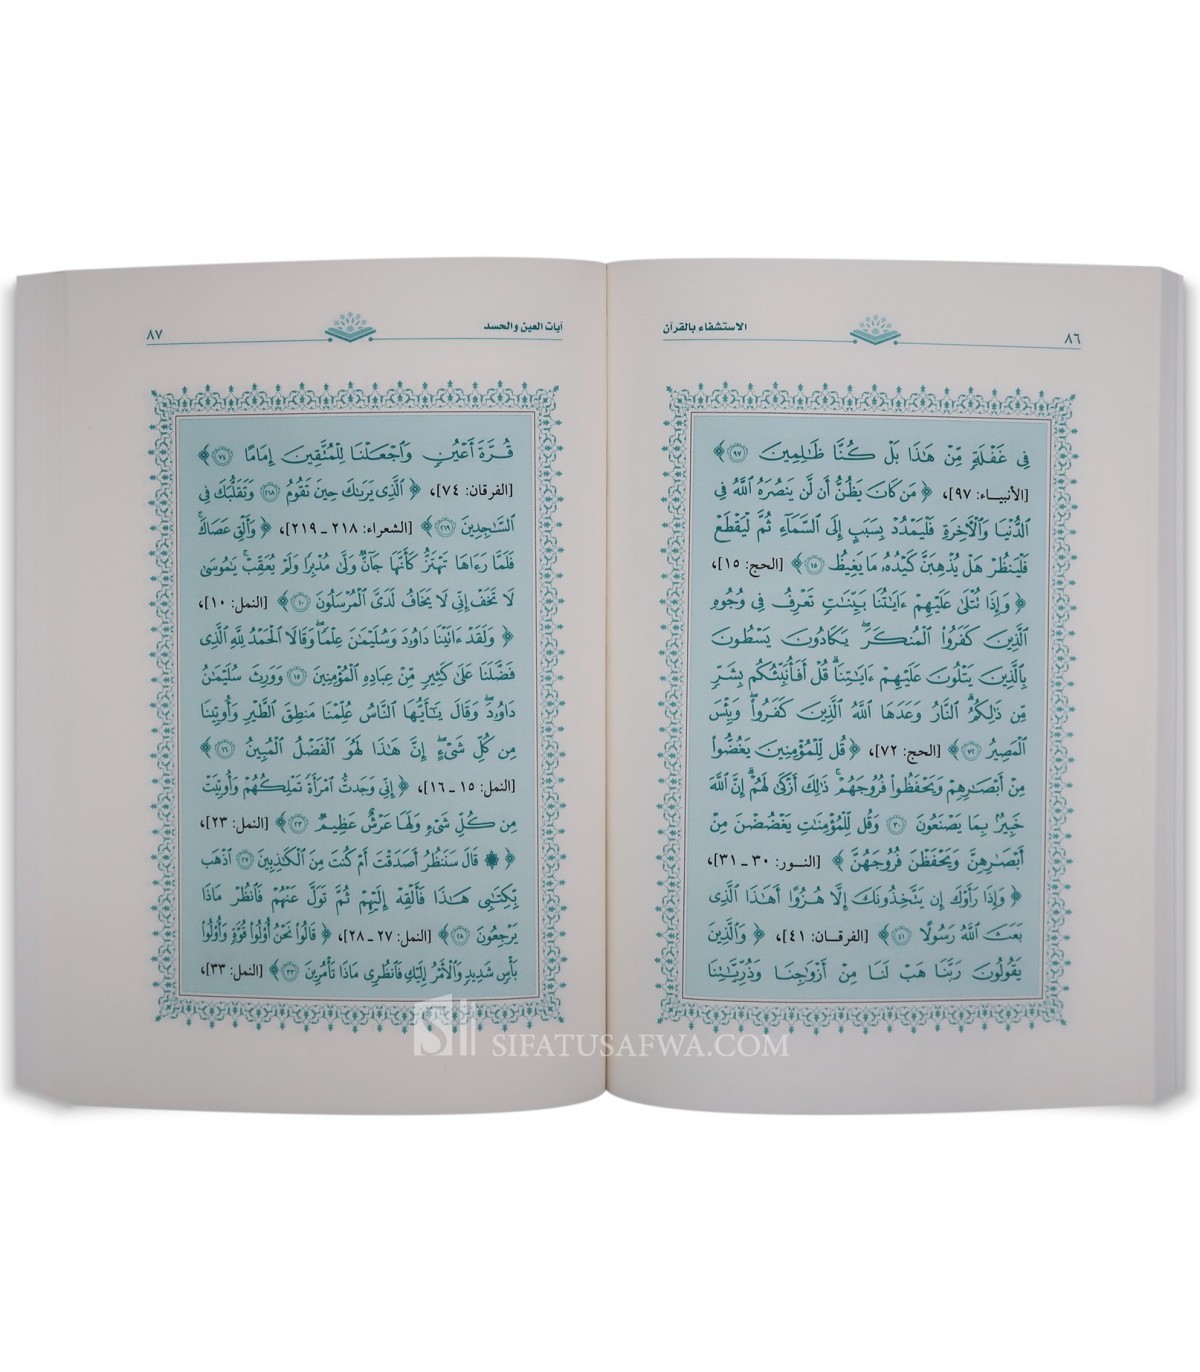 ٨٦
الاستشفاء بالقرآن
فِي غَفْلَةٍ مِّنْ هَٰذَا بَلْ كُنَّا ظَٰلِمِينَ ٩٧ ﴾
[الأنبياء: ٩٧]، ﴿ مَن كَانَ يَظُنُّ أَن لَّن يَنصُرَهُ ٱللَّهُ فِي
ٱلدُّنْيَا وَٱلْأٓخِرَةِ فَلْيَمْدُدْ بِسَبَبٍ إِلَى ٱلسَّمَآءِ ثُمَّ لْيَقْطَعْ
فَلْيَنظُرْ هَلْ يُذْهِبَنَّ كَيْدُهُۥ مَا يَغِيظُ ١٥ ﴾ [الحج: ١٥]،
﴿ وَإِذَا تُتْلَىٰ عَلَيْهِمْ ءَايَٰتُنَا بَيِّنَٰتٍ تَعْرِفُ فِي وُجُوهِ
ٱلَّذِينَ كَفَرُوا۟ ٱلْمُنكَرَ ۖ يَكَادُونَ يَسْطُونَ
بِٱلَّذِينَ يَتْلُونَ عَلَيْهِمْ ءَايَٰتِنَا ۗ قُلْ أَفَأُنَبِّئُكُم بِشَرٍّ
مِّن ذَٰلِكُمُ ۗ ٱلنَّارُ وَعَدَهَا ٱللَّهُ ٱلَّذِينَ كَفَرُوا۟ ۖ وَبِئْسَ
ٱلْمَصِيرُ ٧٢ ﴾ [الحج: ٧٢]، ﴿ قُل لِّلْمُؤْمِنِينَ يَغُضُّوا۟
مِنْ أَبْصَٰرِهِمْ وَيَحْفَظُوا۟ فُرُوجَهُمْ ۚ ذَٰلِكَ أَزْكَىٰ لَهُمْ ۗ إِنَّ ٱللَّهَ
خَبِيرٌۢ بِمَا يَصْنَعُونَ ٣٠ وَقُل لِّلْمُؤْمِنَٰتِ يَغْضُضْنَ مِنْ
أَبْصَٰرِهِنَّ وَيَحْفَظْنَ فُرُوجَهُنَّ ﴾ [النور: ٣٠ ـ ٣١]،
﴿ وَإِذَا رَأَوْكَ إِن يَتَّخِذُونَكَ إِلَّا هُزُوًا أَهَٰذَا ٱلَّذِي
بَعَثَ ٱللَّهُ رَسُولًا ٤١ ﴾ [الفرقان: ٤١]، ﴿ وَٱلَّذِينَ
يَقُولُونَ رَبَّنَا هَبْ لَنَا مِنْ أَزْوَٰجِنَا وَذُرِّيَّٰتِنَا
آيات العين والحسد
٨٧
قُرَّةَ أَعْيُنٍ وَٱجْعَلْنَا لِلْمُتَّقِينَ إِمَامًا ٧٤ ﴾
[الفرقان: ٧٤]، ﴿ ٱلَّذِي يَرَىٰكَ حِينَ تَقُومُ ٢١٨ وَتَقَلُّبَكَ فِي
ٱلسَّٰجِدِينَ ٢١٩ ﴾ [الشعراء: ٢١٨ ـ ٢١٩]، ﴿ وَأَلْقِ عَصَاكَ ۚ
فَلَمَّا رَءَاهَا تَهْتَزُّ كَأَنَّهَا جَآنٌّ وَلَّىٰ مُدْبِرًا وَلَمْ يُعَقِّبْ ۚ يَٰمُوسَىٰ
لَا تَخَفْ إِنِّي لَا يَخَافُ لَدَيَّ ٱلْمُرْسَلُونَ ١٠ ﴾ [النمل: ١٠]،
﴿ وَلَقَدْ ءَاتَيْنَا دَاوُۥدَ وَسُلَيْمَٰنَ عِلْمًا ۖ وَقَالَا ٱلْحَمْدُ لِلَّهِ ٱلَّذِي
فَضَّلَنَا عَلَىٰ كَثِيرٍ مِّنْ عِبَادِهِ ٱلْمُؤْمِنِينَ ١٥ وَوَرِثَ سُلَيْمَٰنُ
دَاوُۥدَ ۖ وَقَالَ يَٰٓأَيُّهَا ٱلنَّاسُ عُلِّمْنَا مَنطِقَ ٱلطَّيْرِ وَأُوتِينَا
مِن كُلِّ شَيْءٍ ۖ إِنَّ هَٰذَا لَهُوَ ٱلْفَضْلُ ٱلْمُبِينُ ١٦ ﴾
[النمل: ١٥ ـ ١٦]، ﴿ إِنِّي وَجَدتُّ ٱمْرَأَةً تَمْلِكُهُمْ وَأُوتِيَتْ
مِن كُلِّ شَيْءٍ وَلَهَا عَرْشٌ عَظِيمٌ ٢٣ ﴾ [النمل: ٢٣]،
﴿ ۞ قَالَ سَنَنظُرُ أَصَدَقْتَ أَمْ كُنتَ مِنَ ٱلْكَٰذِبِينَ ٢٧ ٱذْهَب
بِّكِتَٰبِي هَٰذَا فَأَلْقِهْ إِلَيْهِمْ ثُمَّ تَوَلَّ عَنْهُمْ فَٱنظُرْ مَاذَا
يَرْجِعُونَ ٢٨ ﴾ [النمل: ٢٧ ـ ٢٨]، ﴿ قَالُوا۟ نَحْنُ أُو۟لُوا۟ قُوَّةٍ وَأُو۟لُوا۟
بَأْسٍ شَدِيدٍ وَٱلْأَمْرُ إِلَيْكِ فَٱنظُرِي مَاذَا تَأْمُرِينَ ٣٣ ﴾ [النمل: ٣٣]،
SIFATUSAFWA.COM